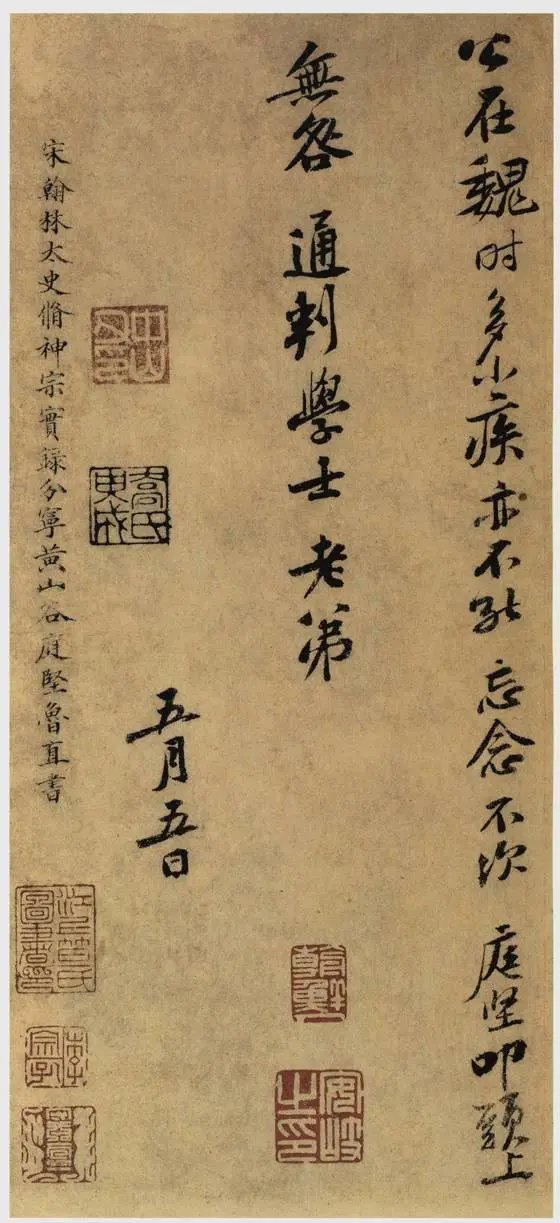 公在魏时多小疾亦不能忘念不次 庭坚叩頭上
無咎 通判學士 老弟
五月五日
宋翰林太史脩神宗實録分寧黄山谷庭堅魯直書
安岐之印